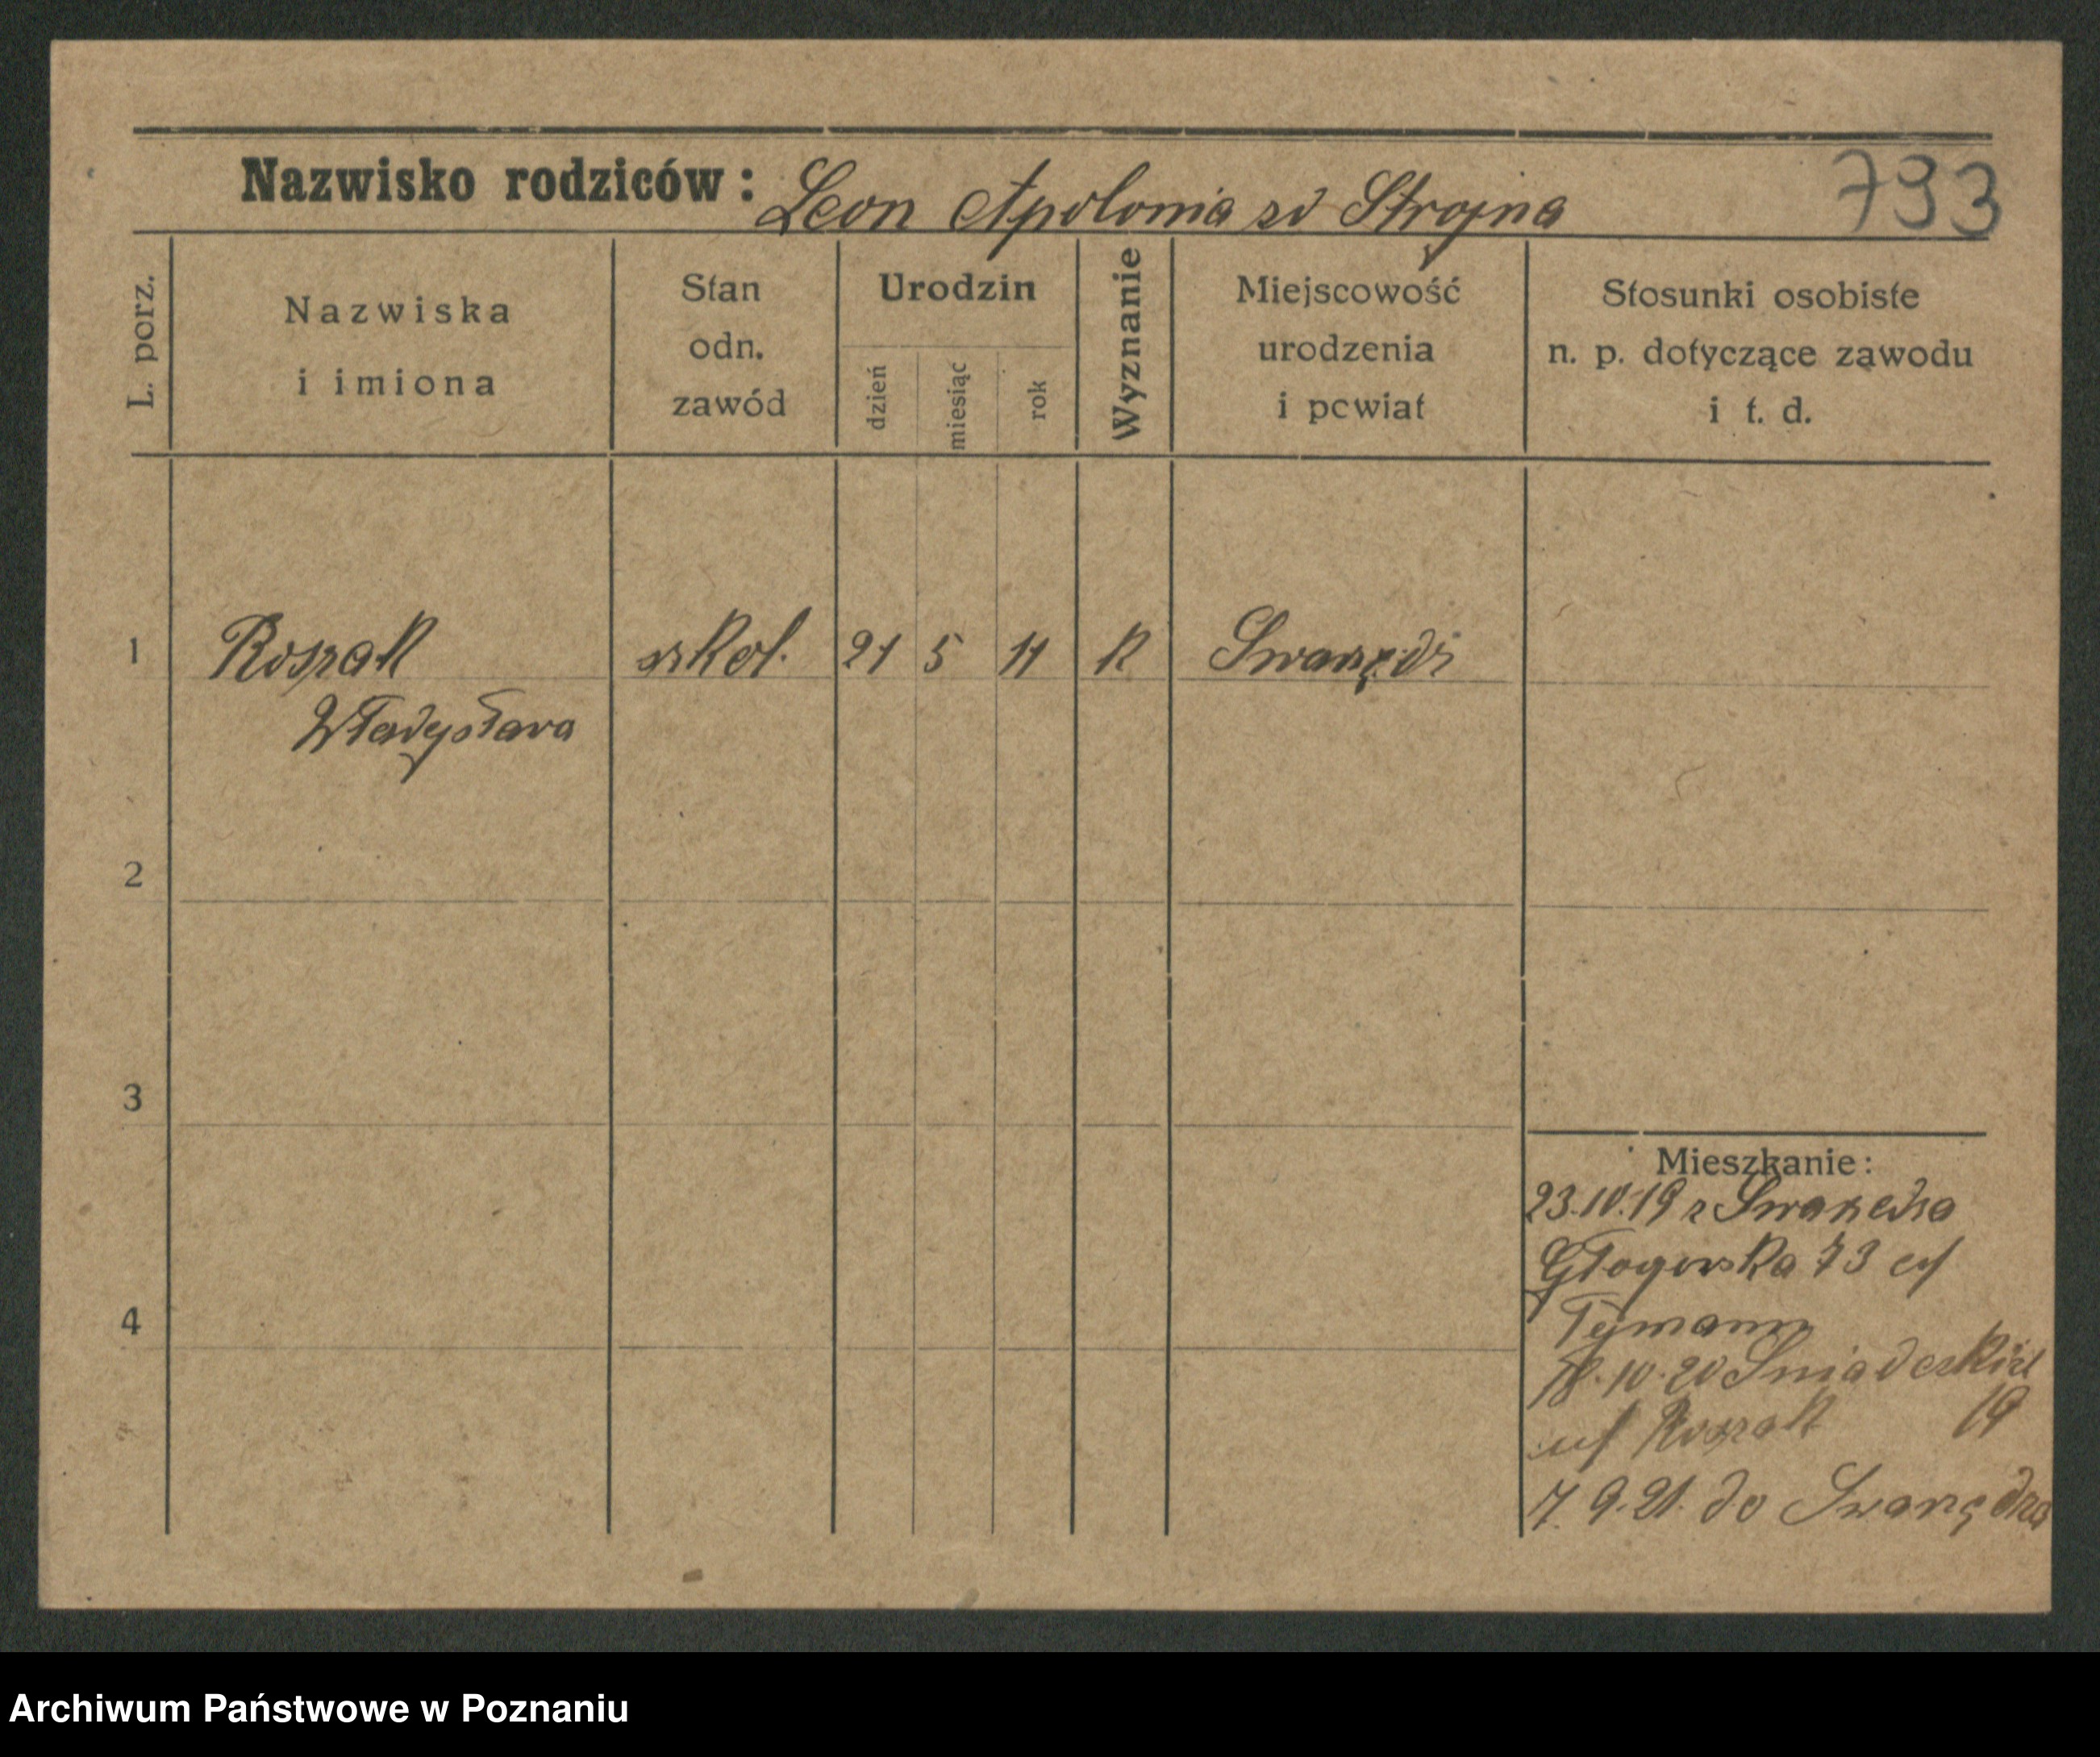 Nazwisko rodziców: Leon Apolonia zd Strojna 793
L. porz.
Nazwiska
i imiona
Stan
odn.
zawód
Urodzin
dzień
miesiąc
rok
Wyznanie
Miejscowość
urodzenia
i powiat
Stosunki osobiste
n. p. dotyczące zawodu
i t. d.
1 Roszak szkol. 21 5 11 K Swarzędz
Władysława
2
3
Mieszkanie:
23.10.19 z Swarzędza
Głogowska 73
4
Tymann
18.10.20 Śniadeckich
Roszak 19
7.9.21. do Swarzędza
Archiwum Państwowe w Poznaniu